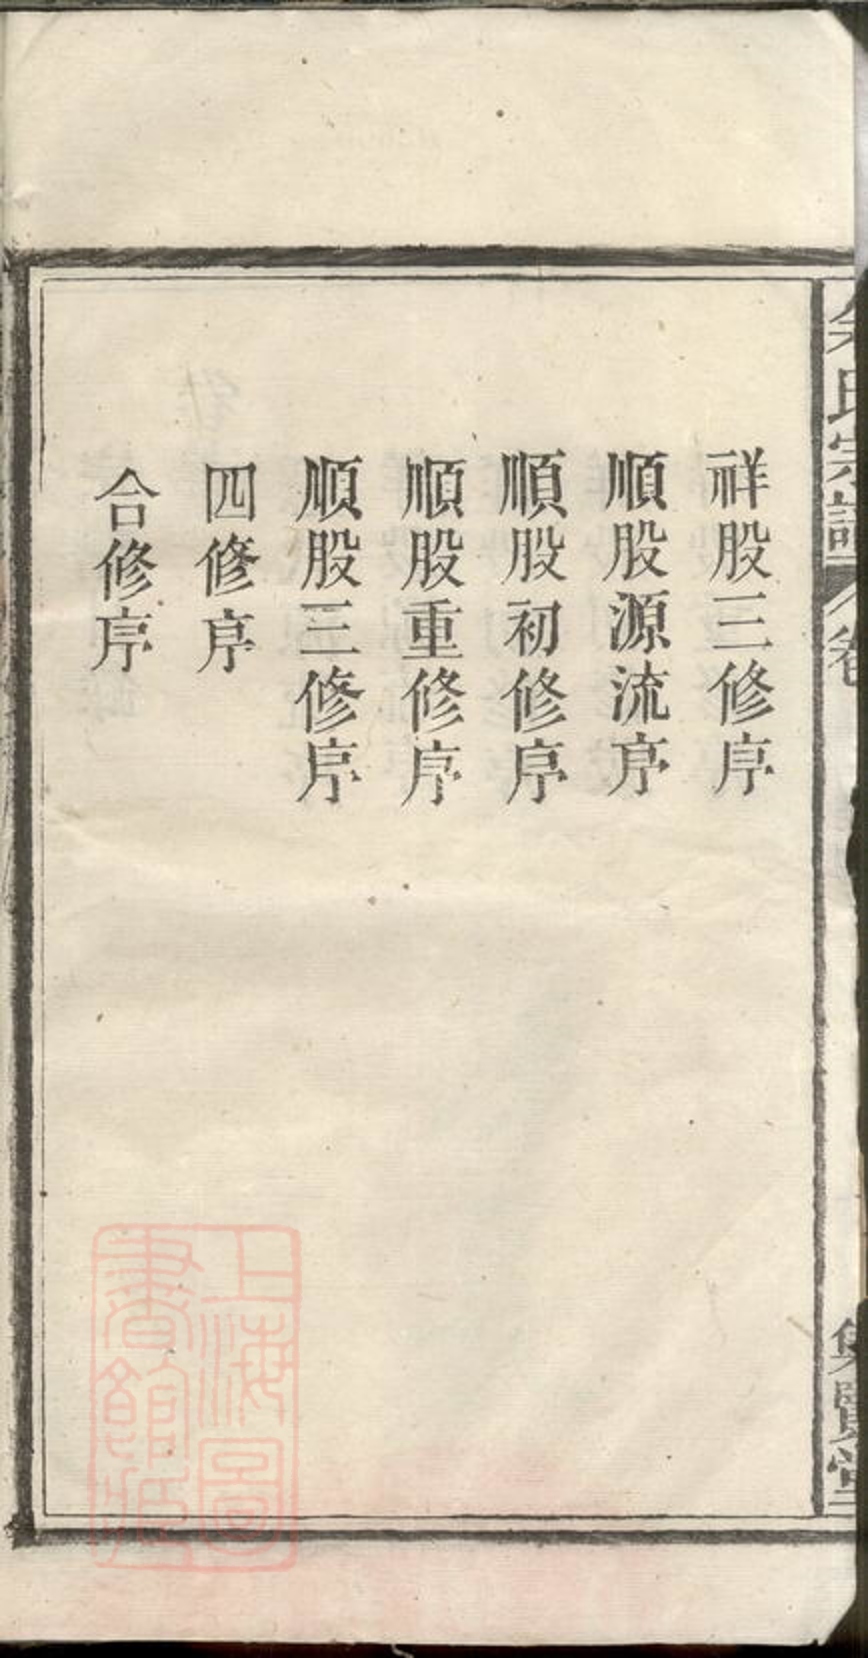 氏宗譜
卷
集賢堂
祥股三修序
順股源流序
順股初修序
順股重修序
順股三修序
四修序
合修序
上海圖
書館藏